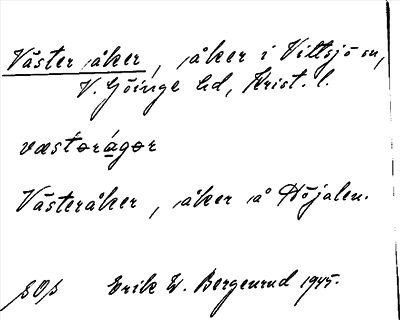 Väster åker, åker i Vittsjö sn,
V. Göinge hd, Krist. l.
væstərágər
Västeråker, åker å Höjalen.
Erik W. Bergenrud 1945.